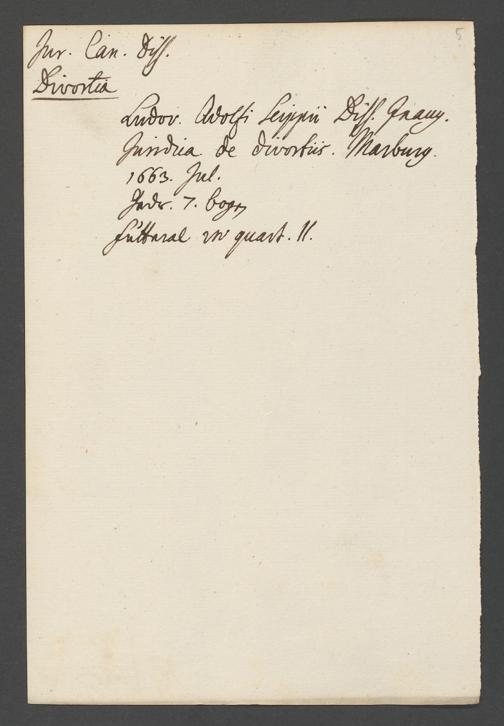 5
Jur. Can. Diss.
Divortia
Ludov. Adolfi Seippii Diss. Inaug.
Juridica de divortiis. Marburg.
1663. Jul.
7. bogn
Futteral in quart. 11.